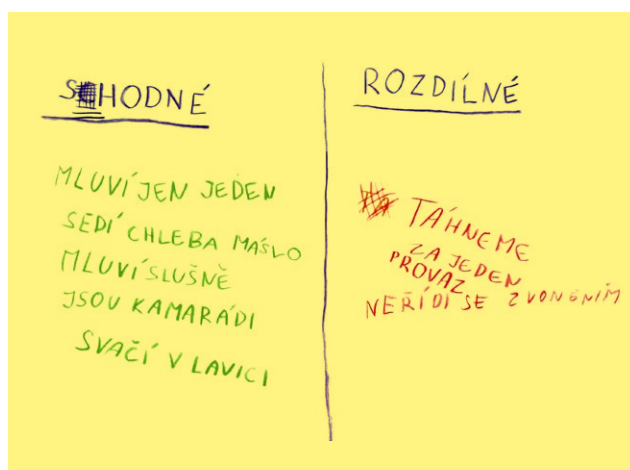 SHODNÉ
MLUVÍ JEN JEDEN
SEDÍ CHLEBA MASLO
MLUVÍ SLUŠNĚ
JSOU KAMARÁDI
SVAČÍ V LAVICI
ROZDÍLNÉ
TÁHNEME
ZA JEDEN
PROVAZ
NEŘÍDÍ SE ZVONĚNÍM